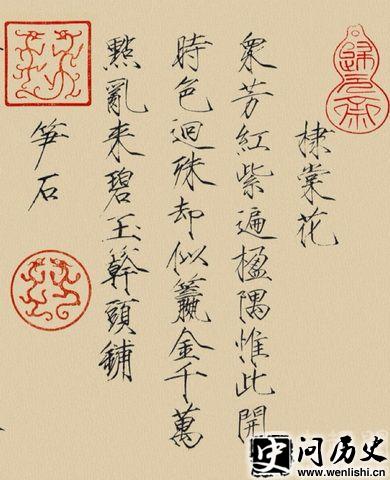 棣棠花
衆芳紅紫遍楹隅惟此開
時色迥殊却似籯金千萬
點亂来碧玉簳頭鋪
筍石
史 问历史
www.wenlishi.cn